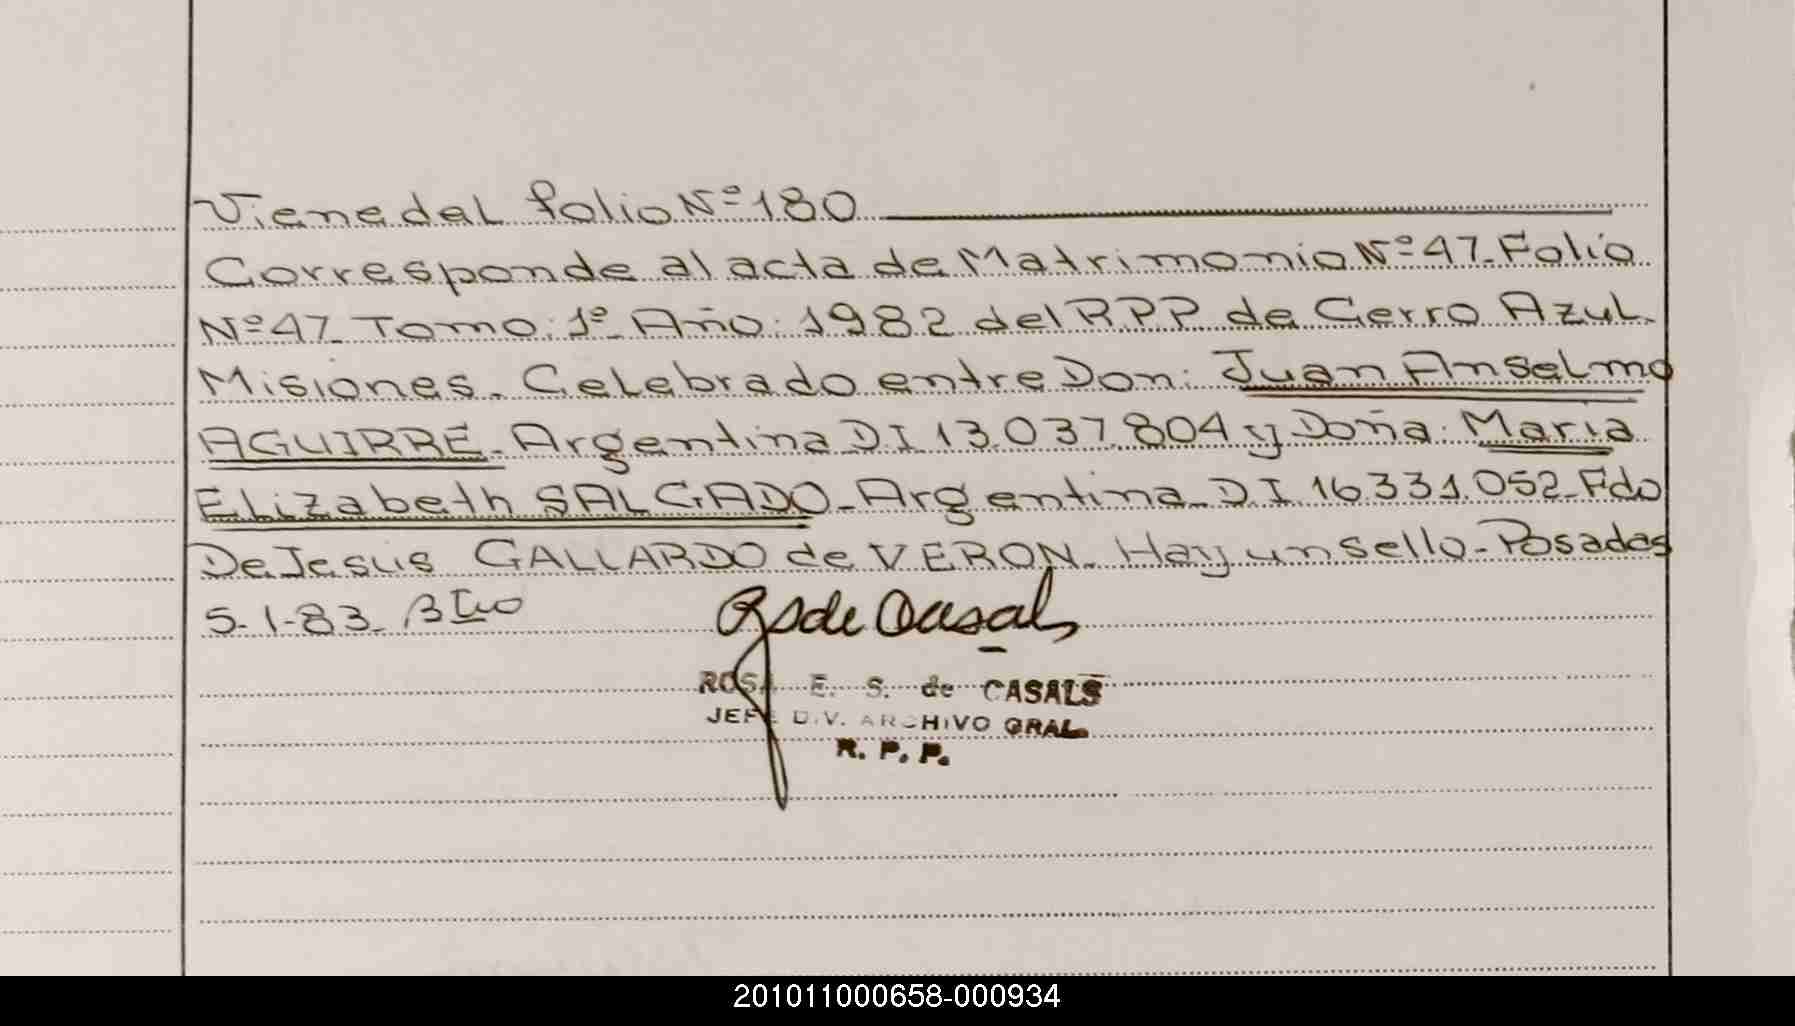 Viene del folio Nº 180
Corresponde al acta de Matrimonio Nº 47- Folio
Nº 47- Tomo: 1º- Año: 1982 del RPP de Cerro Azul.
Misiones. Celebrado entre Don: Juan Anselmo
AGUIRRE- Argentina D.I 13.037.804 y Doña: Maria
Elizabeth SALGADO- Argentina- D.I. 16.331.052- Fdo
De Jesus GALLARDO de VERON. Hay un sello- Posadas
5-1-83-
RS de Casals
ROSA E. S. de CASALS
JEFE DIV. ARCHIVO GRAL.
R. P. P.
201011000658-000934